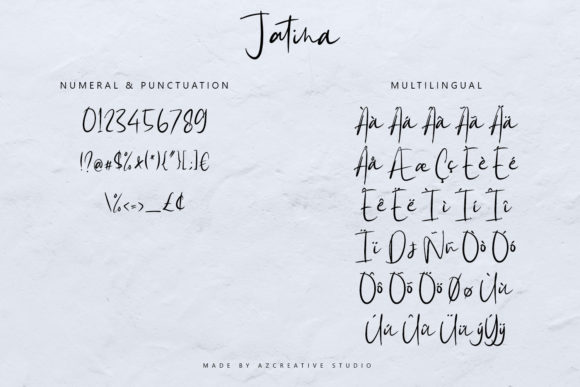 Jatina
NUMERAL & PUNCTUATION
0123456789
!?@#$%&(*){"}[;]€
\%<=>_£¢
MULTILINGUAL
Àà Áá Ââ Ãã Ää
Åå Ææ Çç Èè Éé
Êê Ëë Ìì Íí Îî
Ïï Ðð Ññ Òò Óó
Ôô Õõ Öö Øø Ùù
Úú Ûû Üü ýÝÿ
MADE BY AZCREATIVE STUDIO